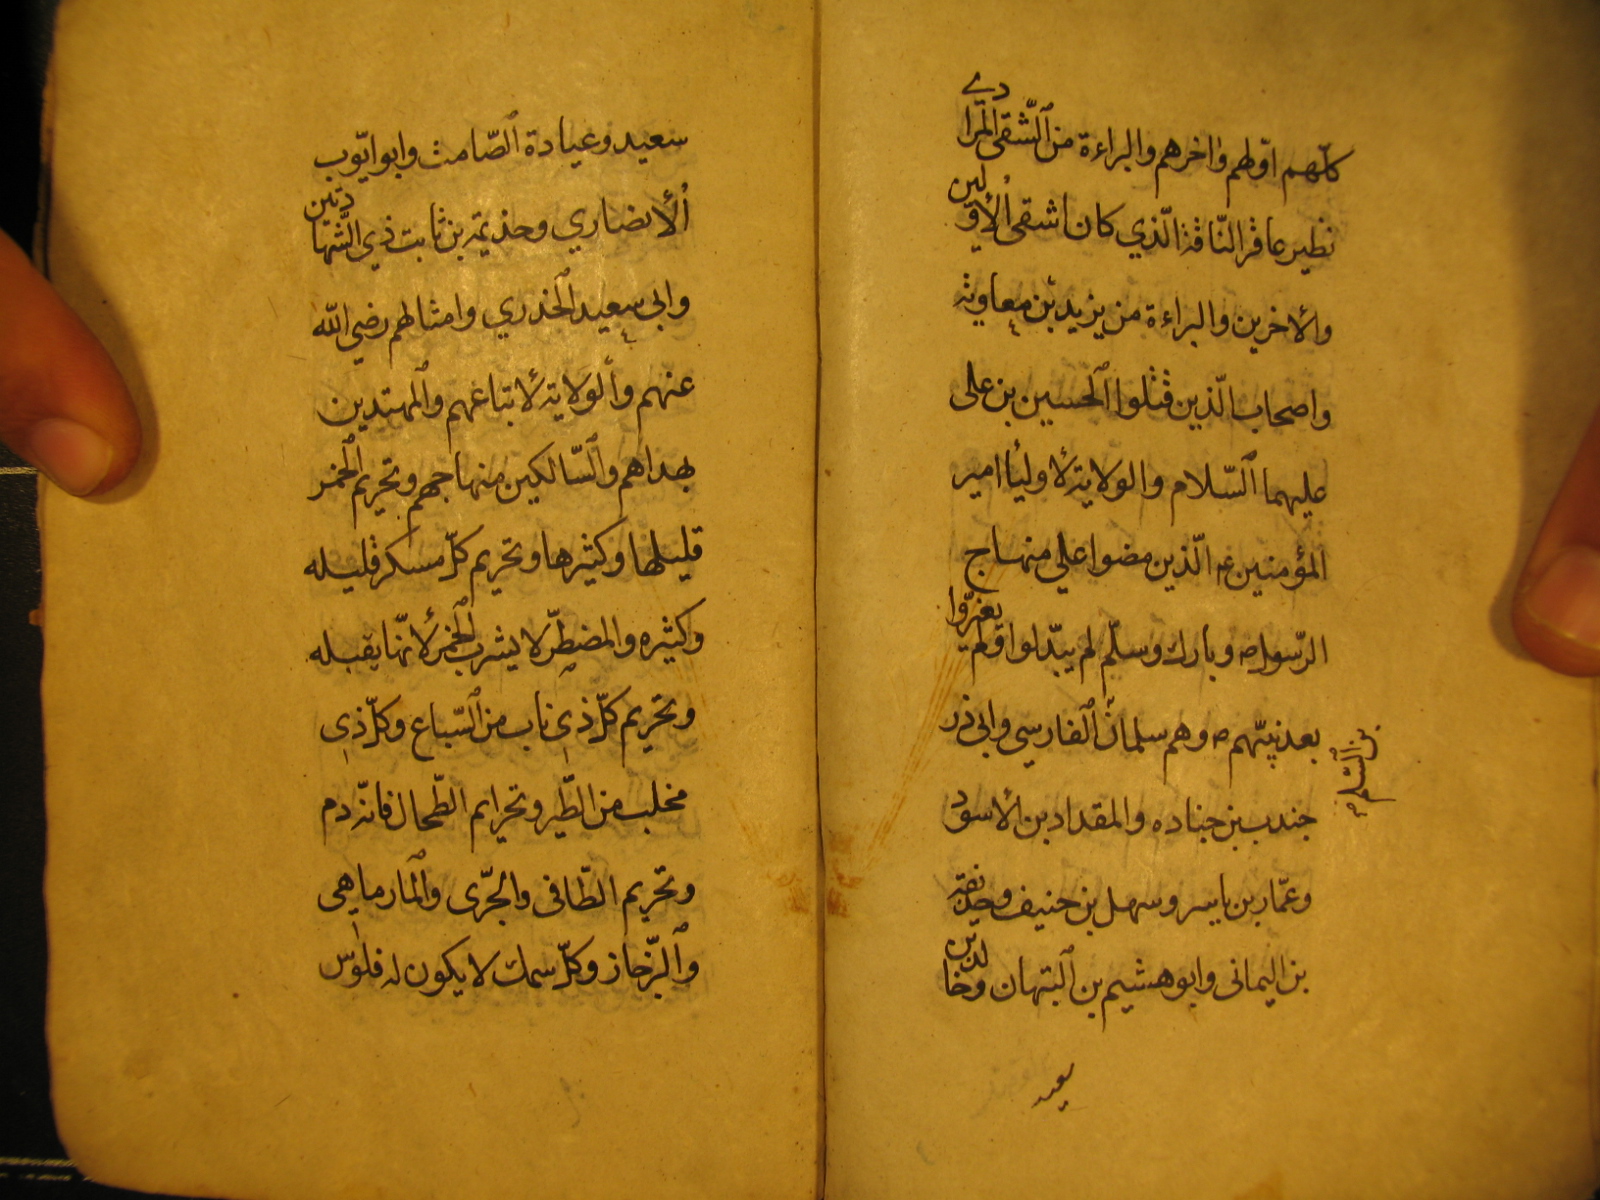 كلّهم اوّلهم واخرهم والبراءة من الشّقى المرادي
نظير عاقر النّاقة الّذي كان اشقى الأوّلين
والاخرين والبراءة من يزيد بن معاوية
واصحاب الّذين قتلوا الحسين بن على
عليهما السّلام والولاية لاولياء امير
المؤمنين ع الّذين مضوا على منهاج
الرّسول ص وبارك وسلّم لم يبدّلوا ولم يغيّروا
بعد نبيّهم ص وهم سلمان الفارسي وابى ذر
جندب بن جناده والمقداد بن الاسود
وعمّار بن ياسر وسهل بن حنيف وحذيفة
بن اليمانى وابو هشيم بن التيهان وخالد بن
سعيد
سعيد وعبادة الصّامت وابو ايّوب
الأنصاري وحذيمة بن ثابت ذي الشّهادتين
وابى سعيد الخدري وامثالهم رضي الله
عنهم والولاية لاتباعهم والمهتدين
بهداهم والسّالكين منهاجهم وتحريم الخمر
قليلها وكثيرها وتحريم كلّ مسكر قليله
وكثيره والمضطرّ لا يشرب الخمر لانّها يقبله
وتحريم كلّ ذي ناب من السّباع وكلّ ذي
مخلب من الطّير وتحرايم الطّحال فانّه دم
وتحريم الطّافى والجرّى والمارماهى
والزّجاز وكلّ سمك لا يكون له فلوس